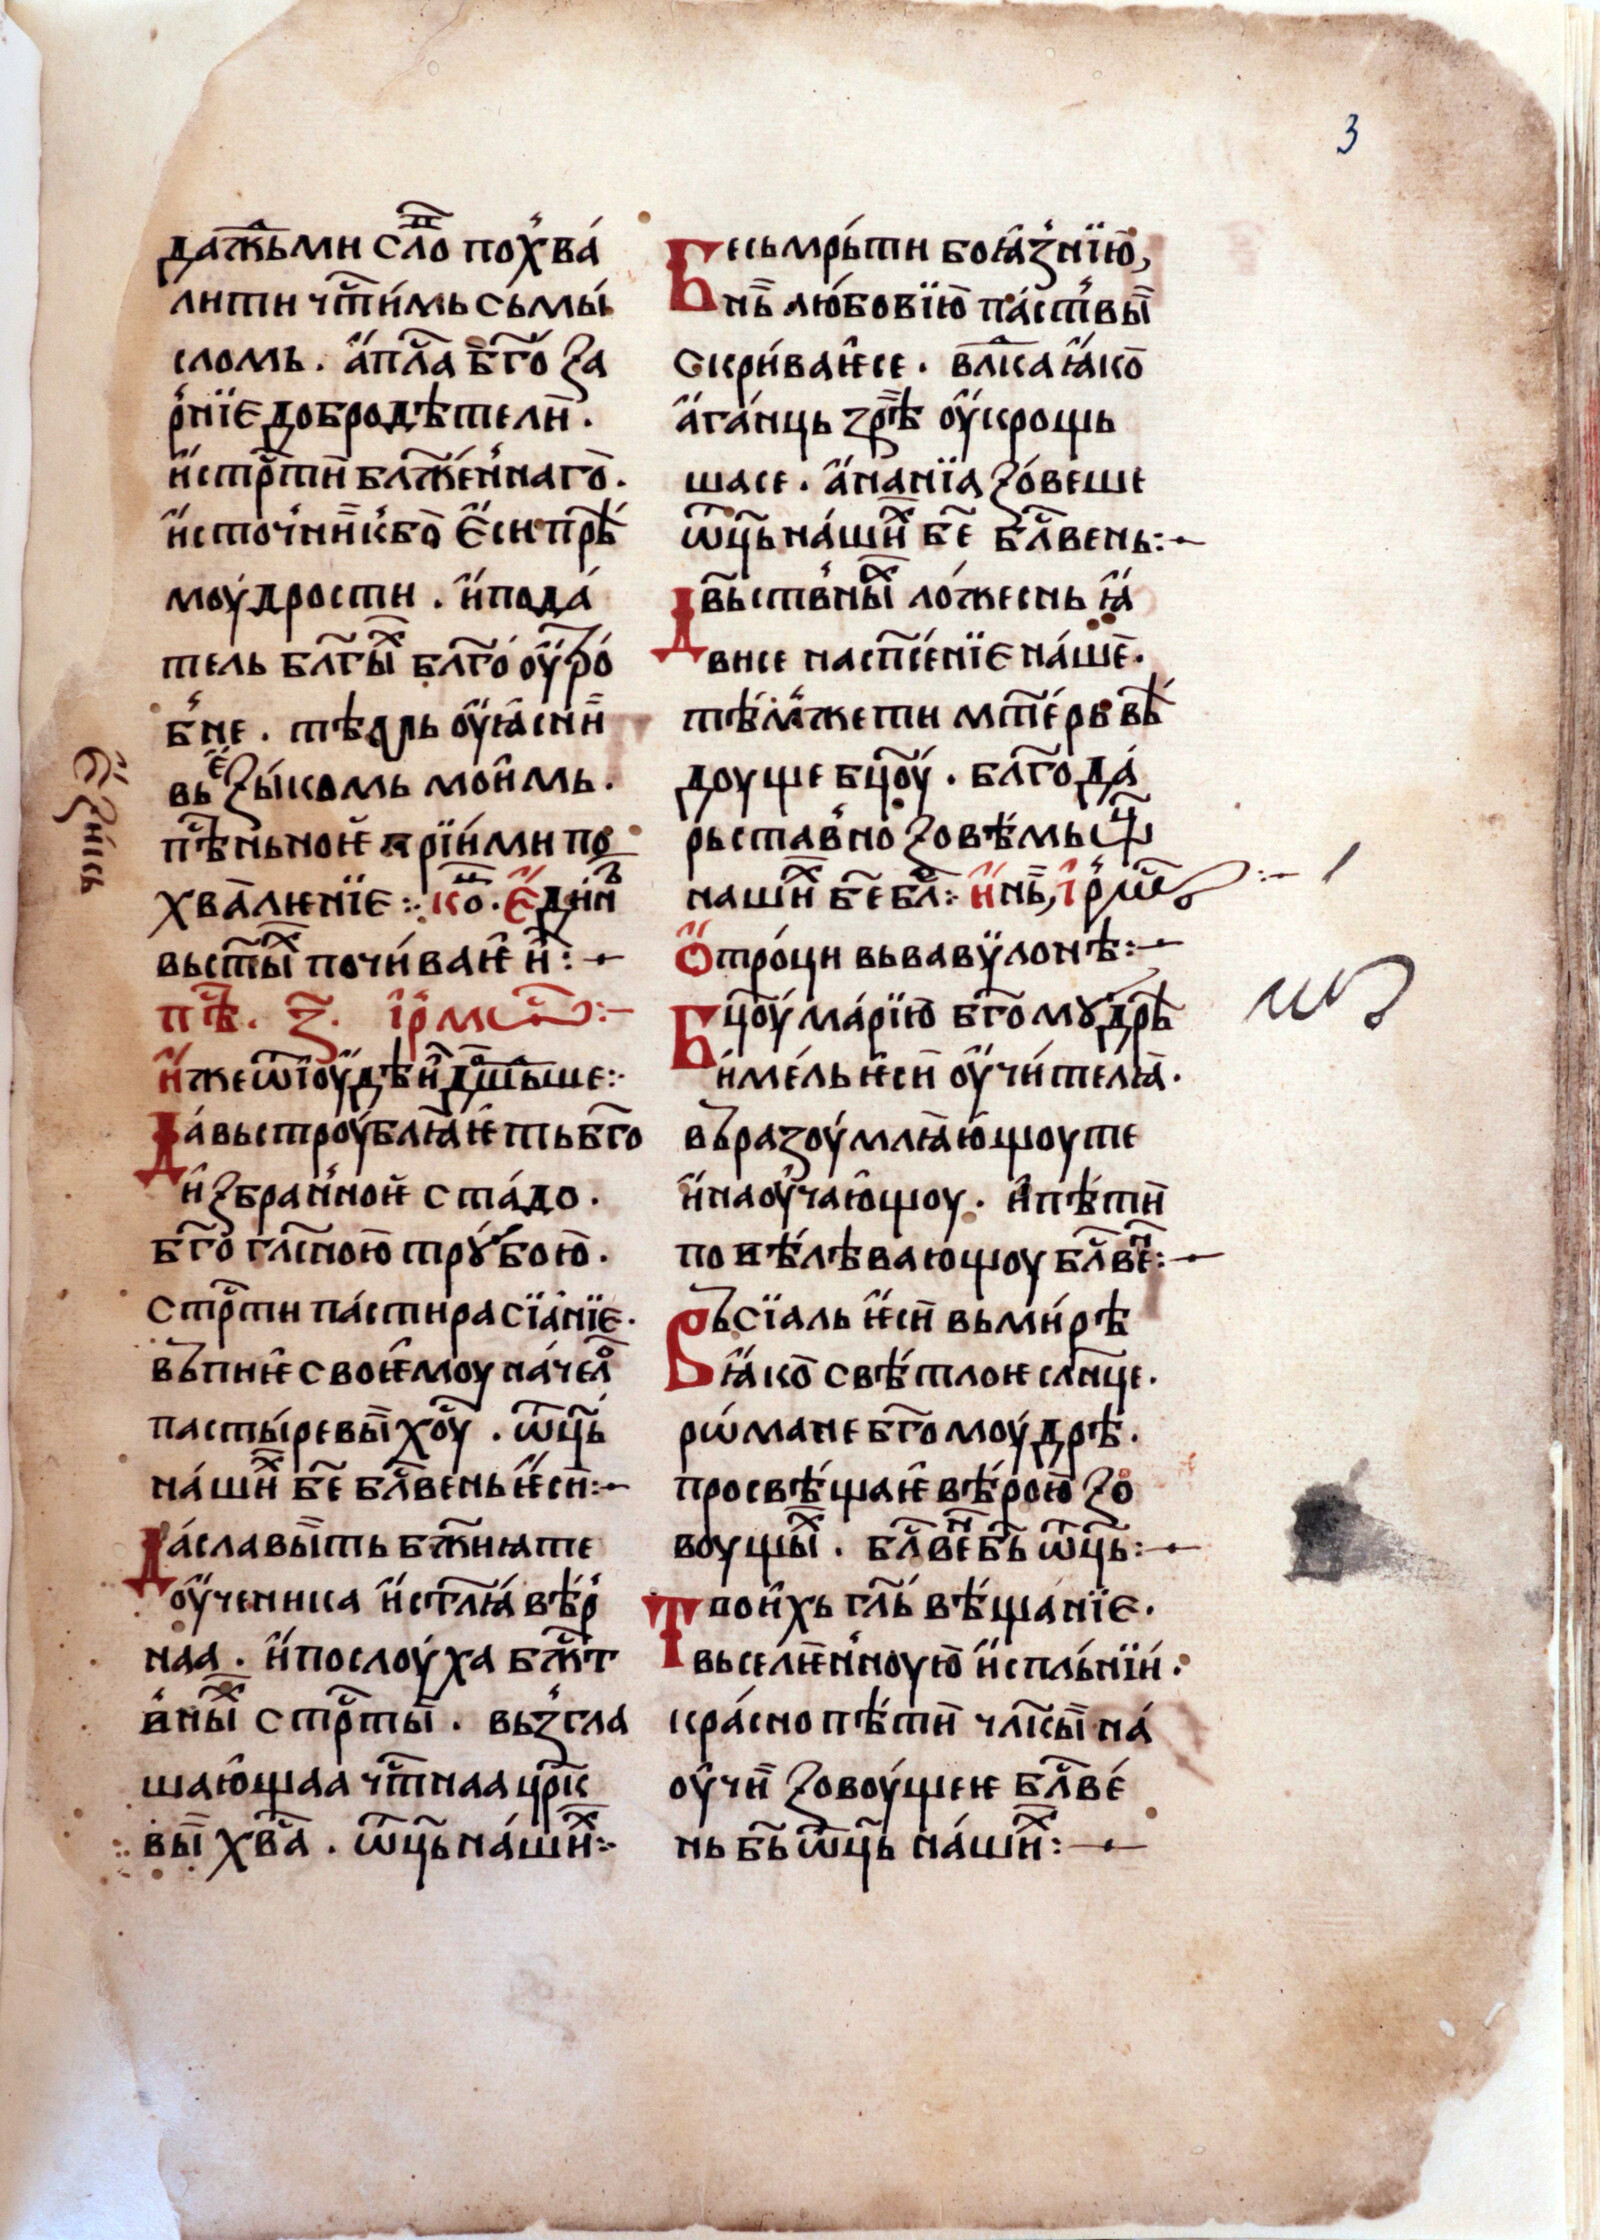 3
дажьми сло похва
лити чтимь сьмы
сломь. апла бго за
рніе добродѣтели.
и стрти блженнаго.
источникь бо еси прѣ
моудрости. и пода
тель блгы благо оузро
бне. тѣ
вьезыкомь моимь.
пѣньное приими по
хваленіе: ко. един
высты почиваѥ и:
пѣ. з. ірмо:
иже ѿ іоудѣи дшьше:
Да вьструблꙗѥть бго
избранное стадо.
бгогласною троубою.
стрти пастира сіаніе.
въпиѥ своѥмоу начел
пастыревы хоу. ѿць
наши бе блвень ѥси:
Да славыть бжиꙗ те
оученика и стглꙗ вѣр
наа. и послоуха бжт
вны стрты. вьзгла
шающаа чтнаа црк
вы хва. ѿць наши:
езись
Бесьмрьти боꙗзнію,
нь любовію паствы
скриваѥсе. влка ꙗко
аганць зрѣ оукрошь
шасе. ананіа зовеше
ѿць наши бе блвень:
Двьствны ложеснь ꙗ
висе на спсеніе наше.
тѣмже ти мтерь вѣ
доуще бцоу. благода
рьставно зовѣмь ѿц
наши бе бл: и нь, ірмо
Отроци вь вавѵлонѣ:
Бцоу марію бгомудрѣ
имель ѥси оучителꙗ.
въразоумлꙗющоу те
и наоучающоу. и пѣти
повѣлѣвающоу блвен:
Въсіаль ѥси вь мирѣ
ꙗко свѣтлоѥ слнце.
рѡмане бгомоудрѣ.
просвѣщаѥ вѣрою зо
воущы. блвен бь ѿць:
Твоихь гль вѣщаніе.
вьселѥнноую испльніи.
красно пѣти члкы на
оучи зовоущеѥ блве
нь бь ѿць наши: